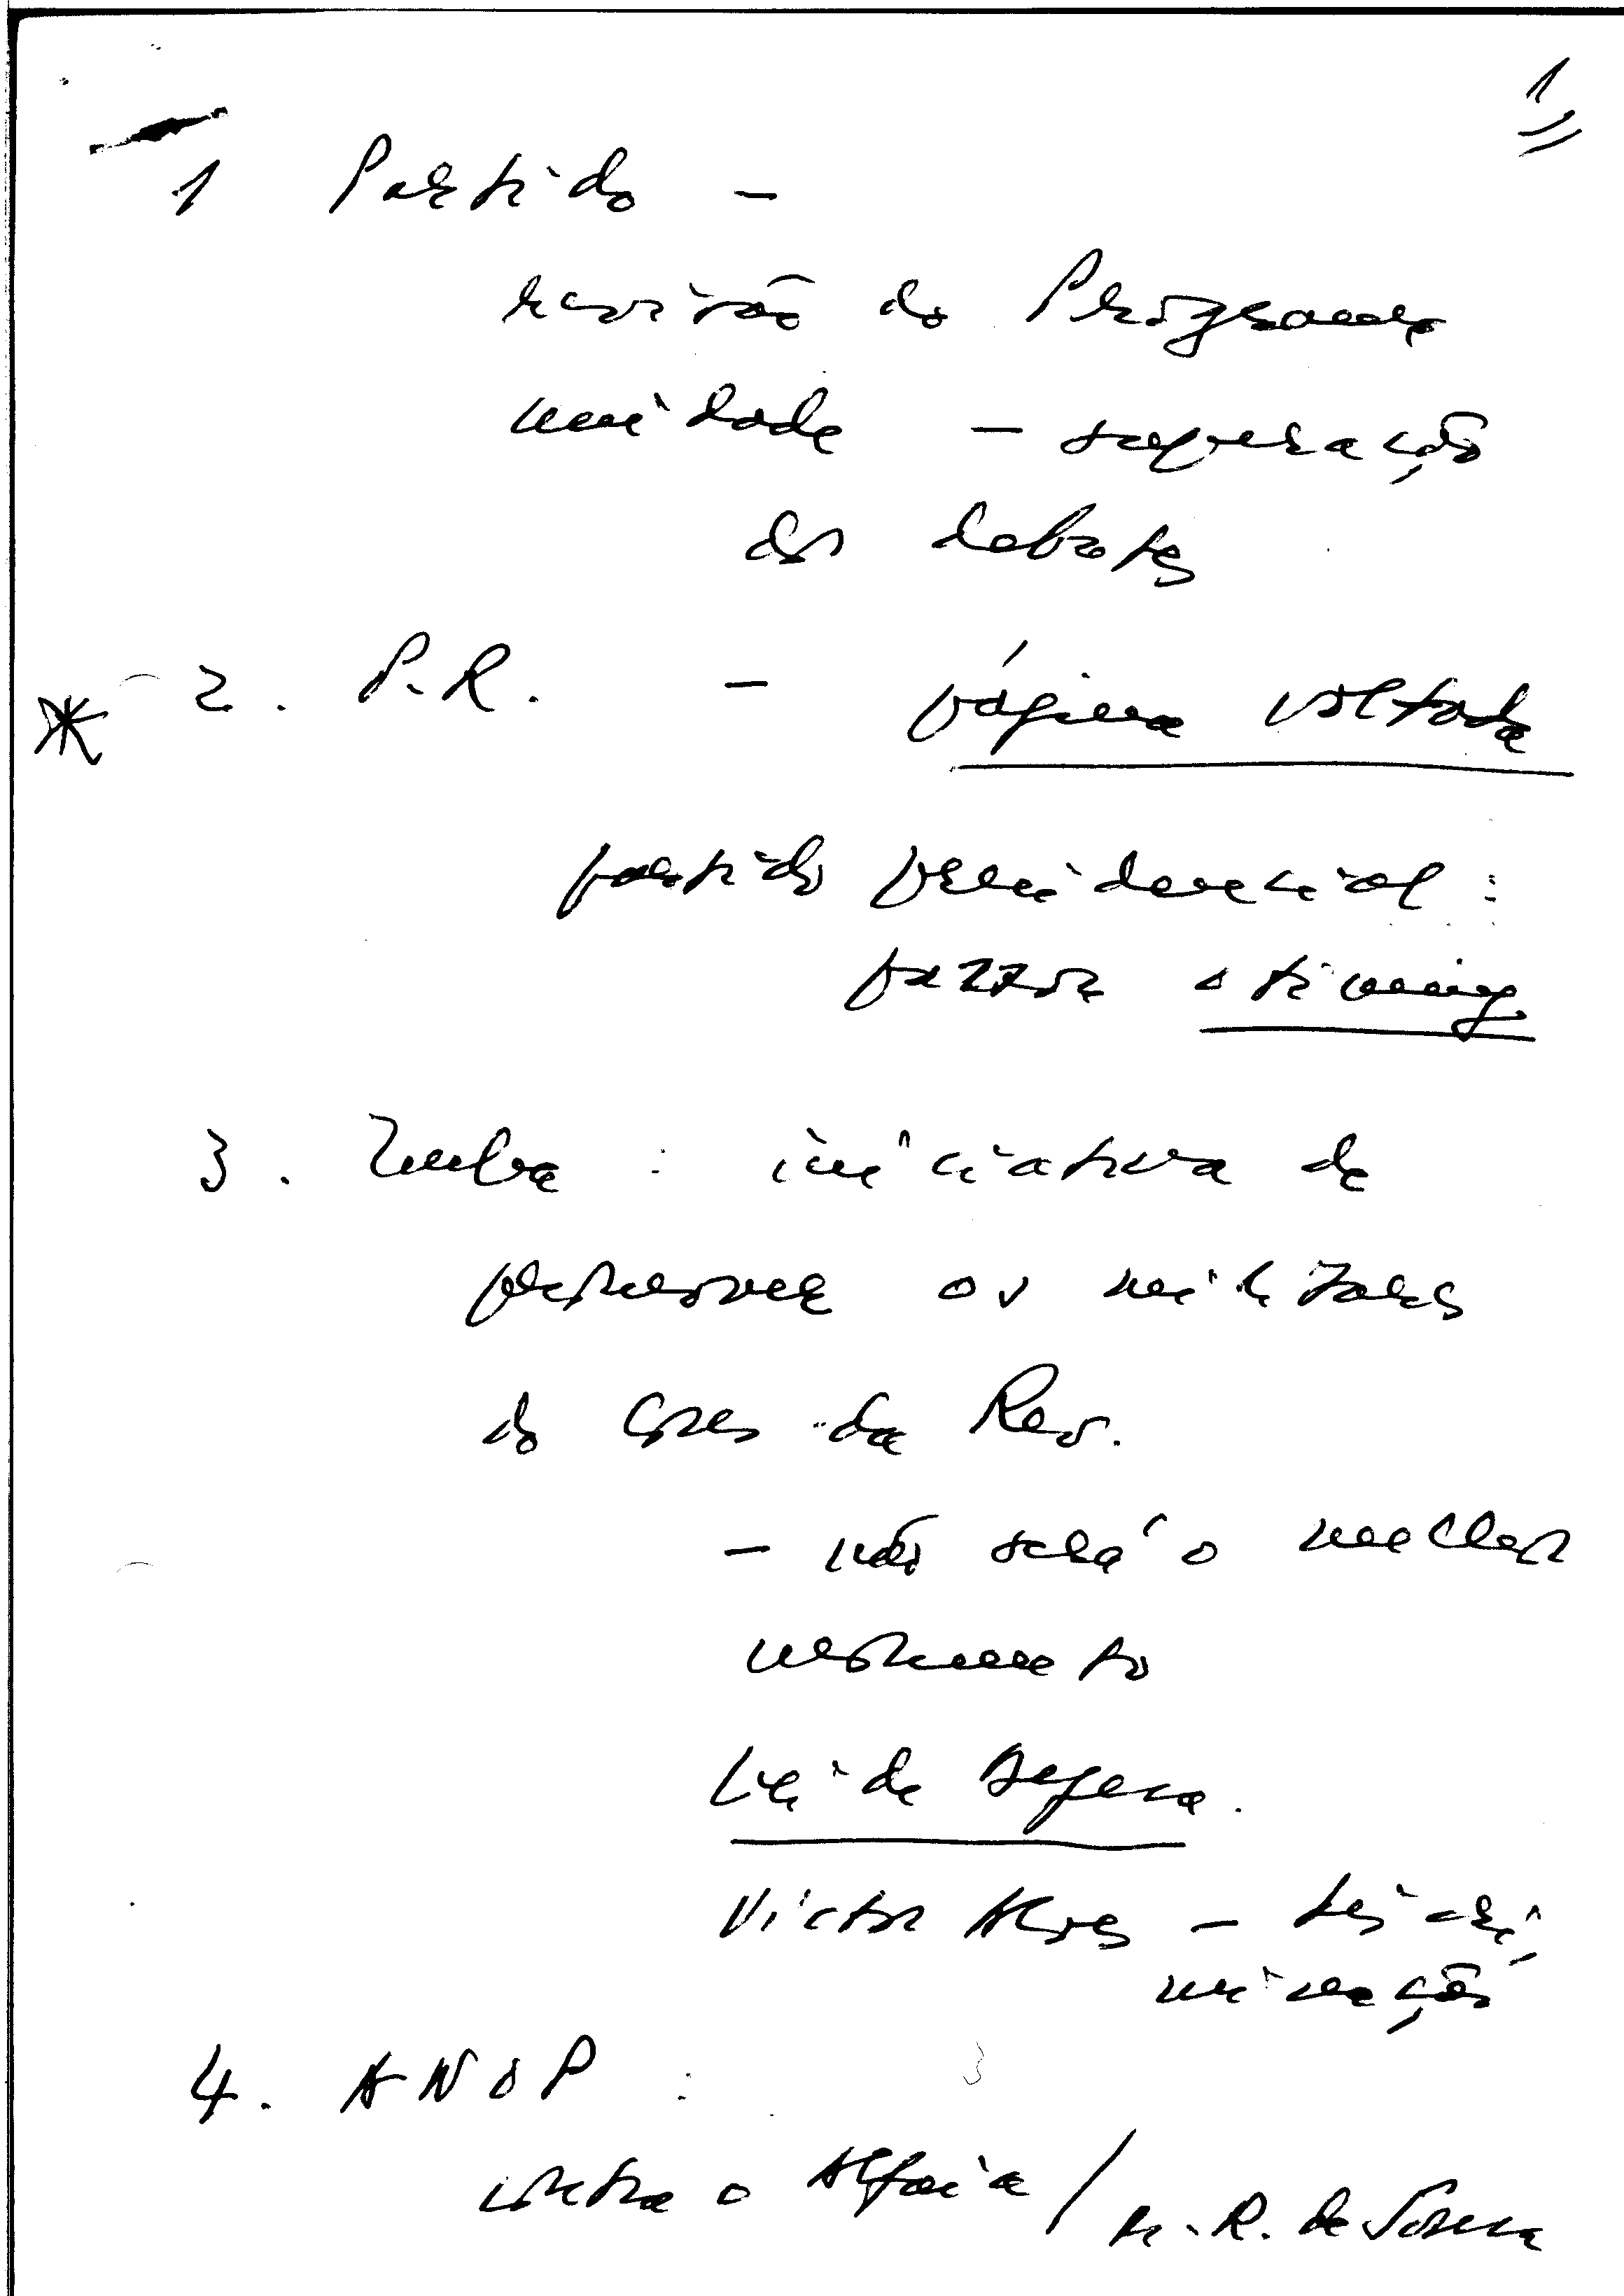 1
1 Partido -
revisão do Programa
unidade - superação
dos debates
* 2. P.R. - página voltada
partido presidencial :
fazer o timing
3. : iniciativa de
promover os militares
do Cons. da Rev.
- não será o melhor
momento
Lei de defesa.
Victor Alves - discri-
minação
4. ANOP :
contra o Alfaia / M. R. de Sousa